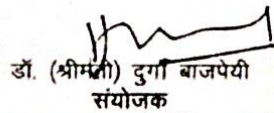 डॉ. (श्रीमती) दुर्गा बाजपेयी
संयोजक